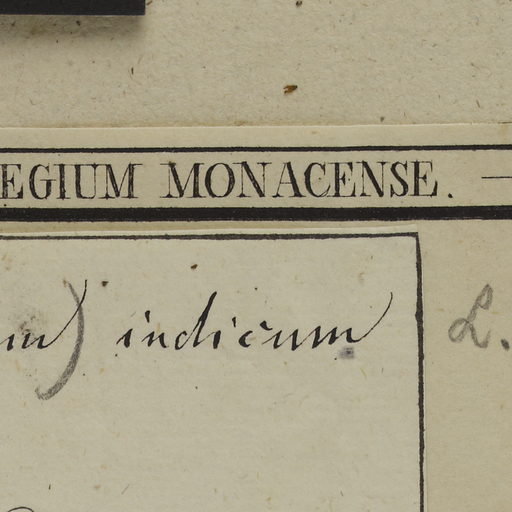 EGIUM MONACENSE. —
m) indicum L.